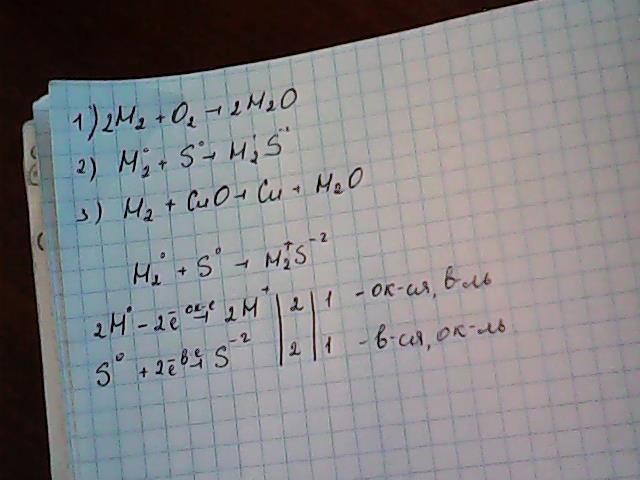 1) 2H₂ + O₂ → 2H₂O
2) H₂⁰ + S⁰ → H₂⁺S⁻²
3) H₂ + CuO → Cu + H₂O
H₂⁰ + S⁰ → H₂⁺S⁻²
2H⁰ - 2ē ок-е → 2H⁺ | 2 | 1 - ок-ся, в-ль
S⁰ + 2ē в-е → S⁻² | 2 | 1 - в-ся, ок-ль